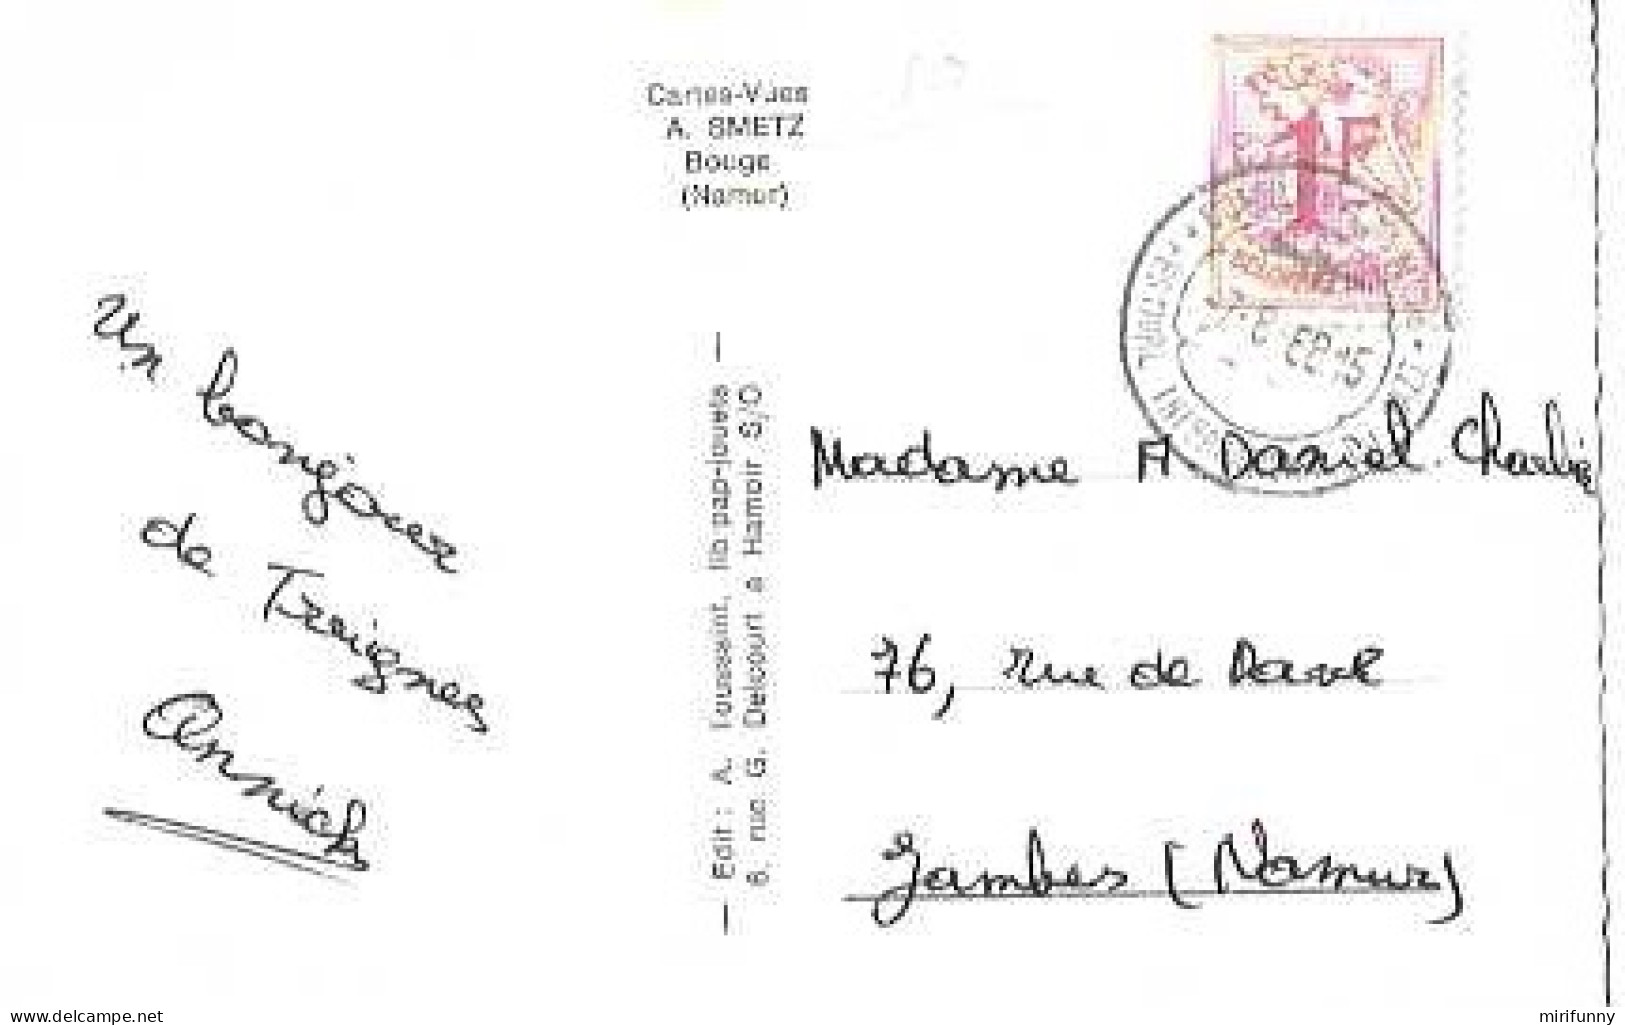 Cartes-Vues
A. SMETZ
Bouge
(Namur)
1F
Un bonjour
de Treignes
Annick
— Edit : A. Toussaint, lib pap-jouets —
6, rue G. Delcourt à Hamoir S/O
Madame A Daniel
76, rue de Dave
Jambes (Namur)
www.delcampe.net
mirifunny